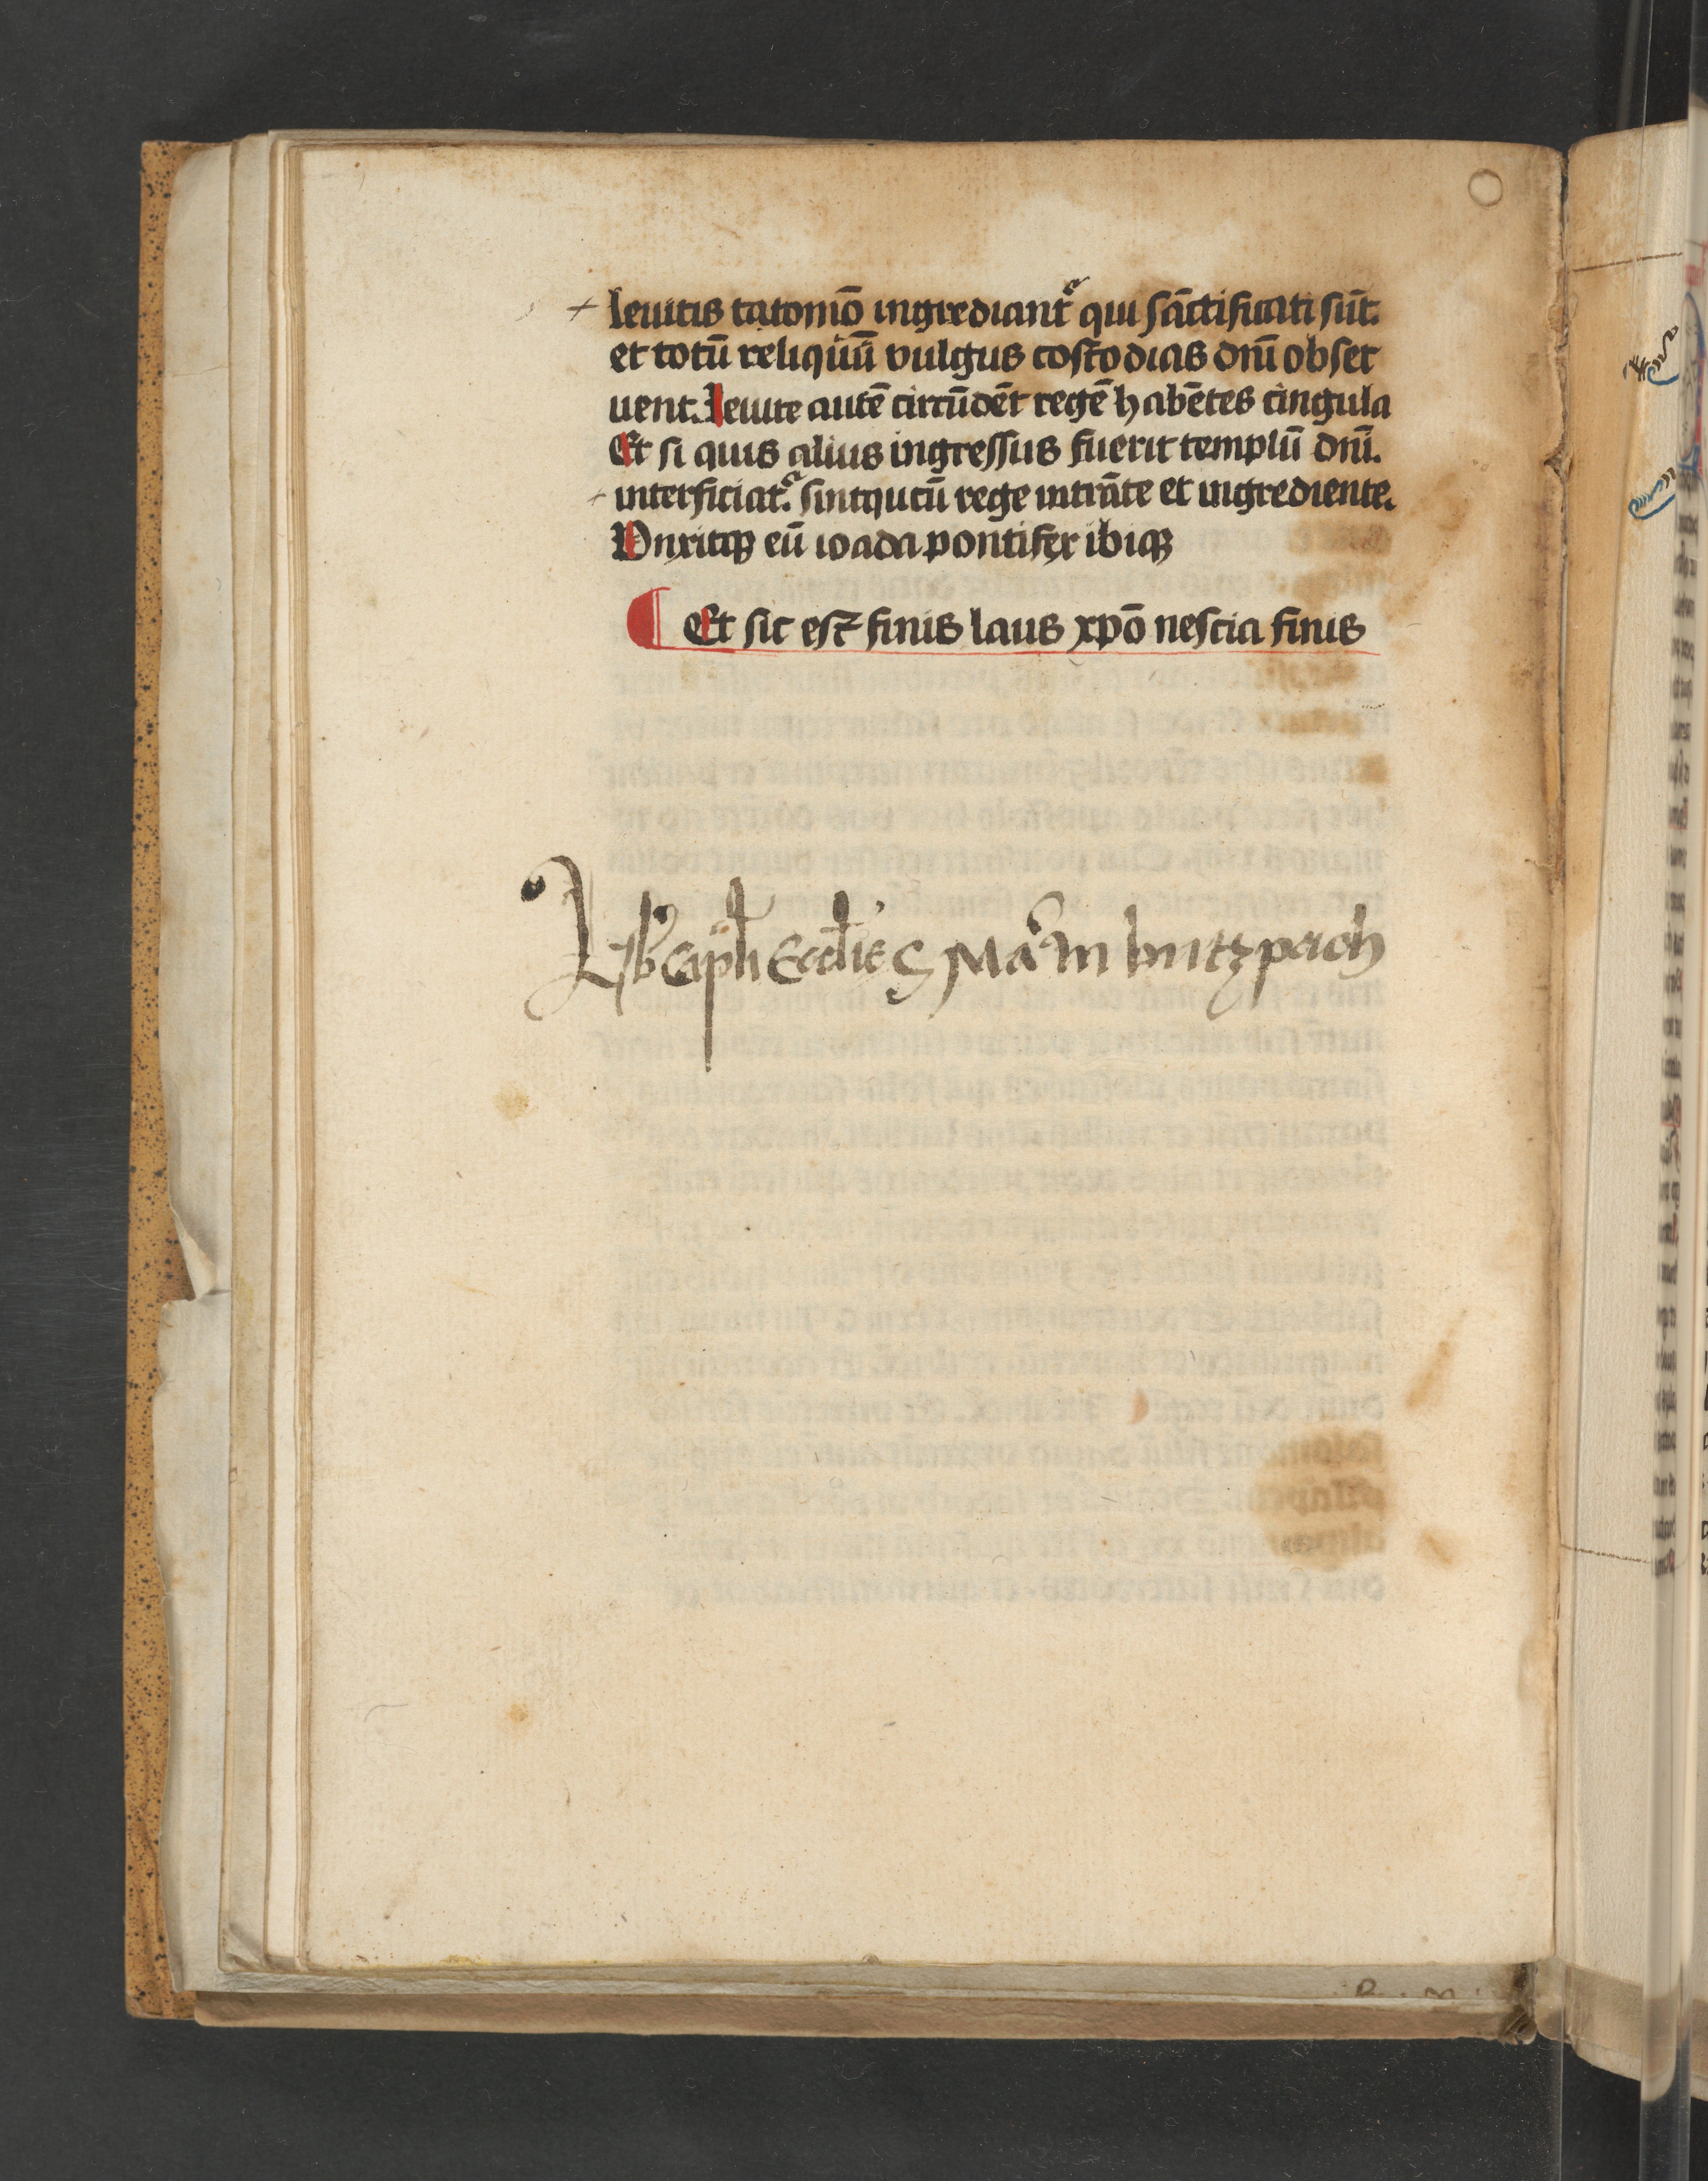 leuitis tātomō ingrediantᷣ qui sāctificati sūt.
et totū reliquū vulgus costodias dn̄i obser
uent. Leuite autē circūdēt regē habētes cingula
Et si quis alius ingressus fuerit templū dn̄i.
interficiatᷣ. sintqucū rege intrāte et ingrediente.
Vnxitqꝫ eū ioada pontifex ibiqꝫ
Et sic est finis laus xpō nescia finis
Lib Capli Ecclie S Marci In butzpach